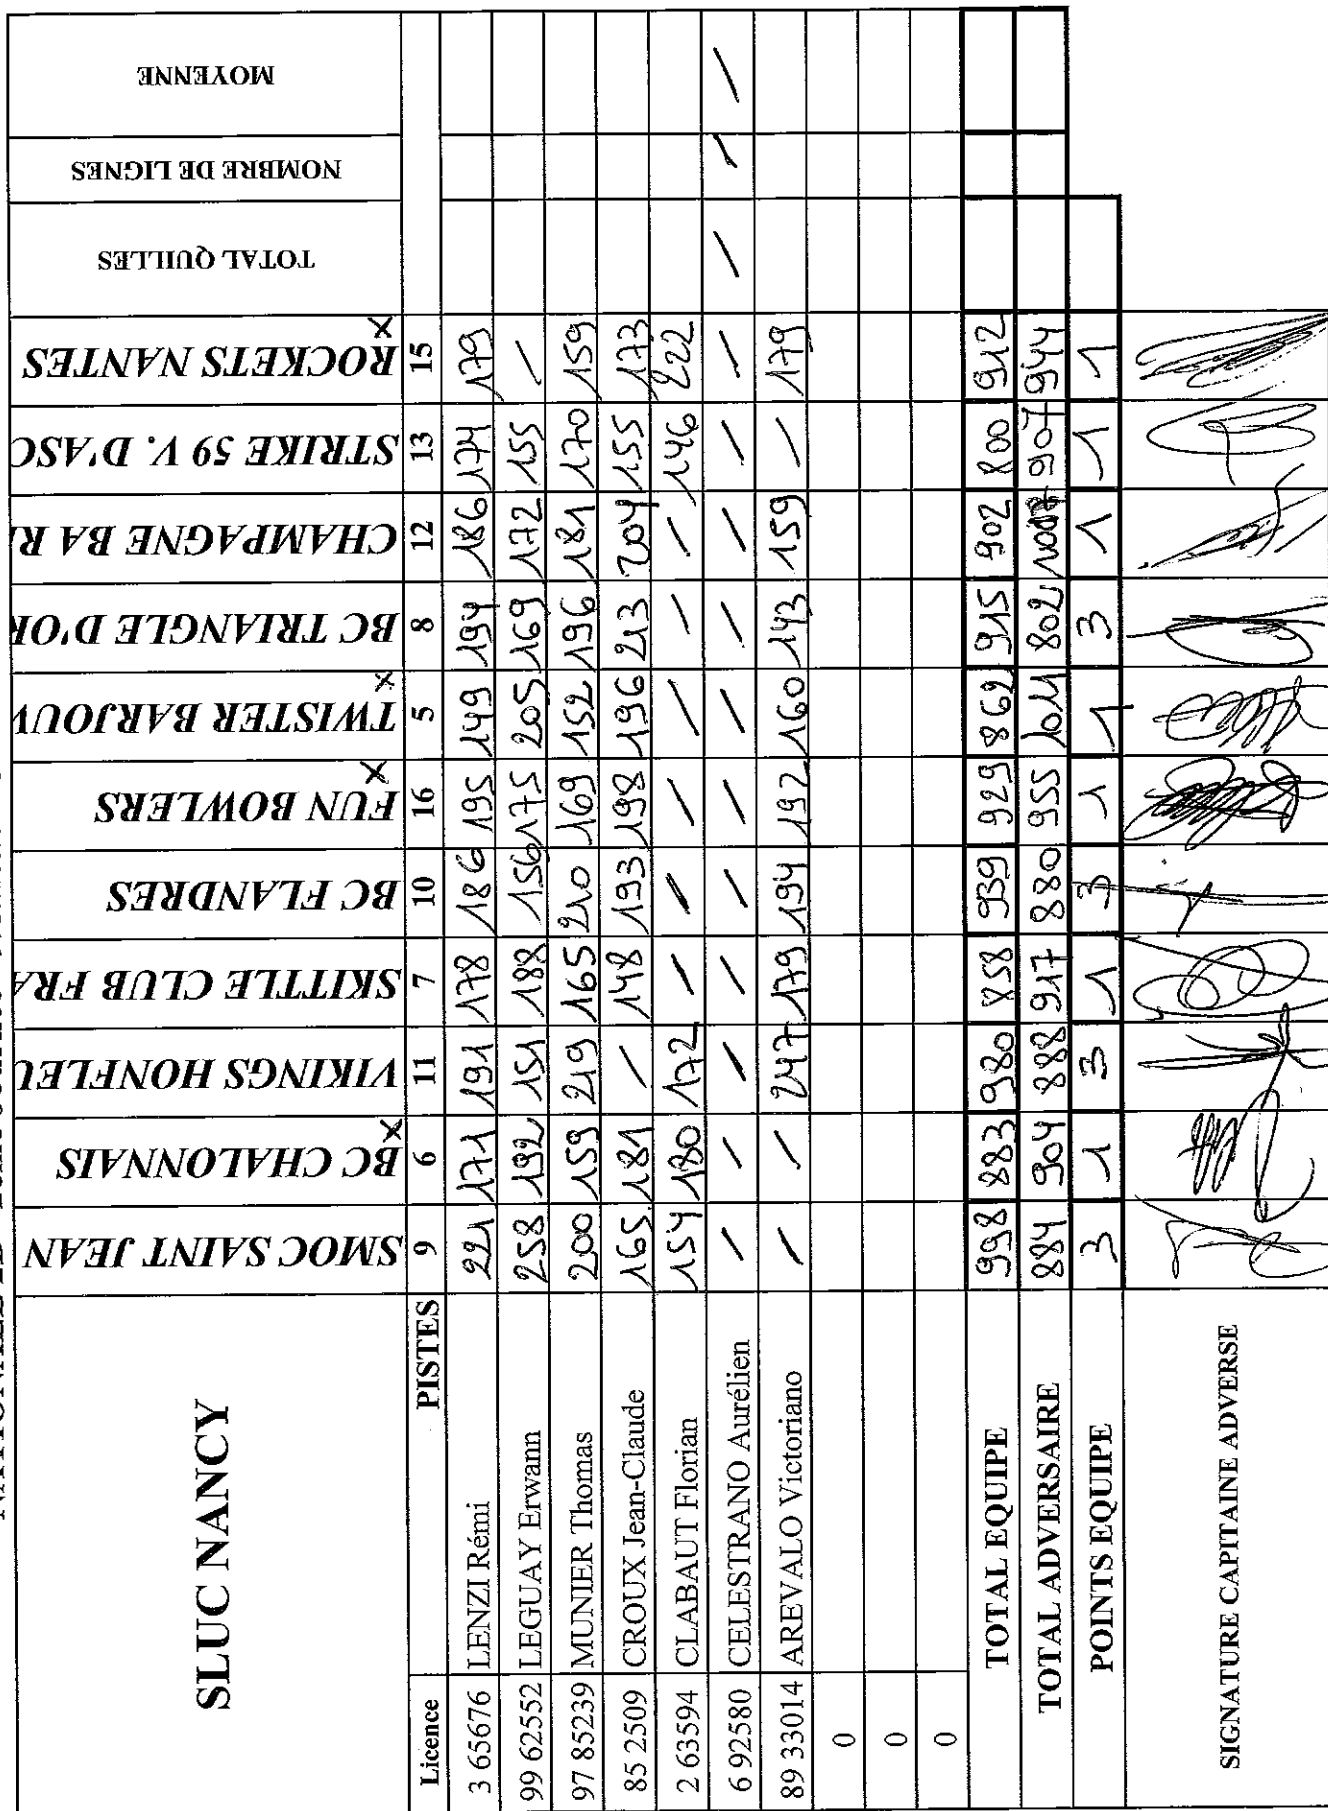 SLUC NANCY
SMOC SAINT JEAN
BC CHALONNAIS X
VIKINGS HONFLEU
SKITTLE CLUB FRA
BC FLANDRES
FUN BOWLERS X
TWISTER BARJOUV X
BC TRIANGLE D'OR
CHAMPAGNE BA
STRIKE 59 V. D'ASC
ROCKETS NANTES X
TOTAL QUILLES
NOMBRE DE LIGNES
MOYENNE
Licence PISTES 9 6 11 7 10 16 5 8 12 13 15
3 65676 LENZI Rémi 221 171 191 178 186 195 149 194 186 174 179
99 62552 LEGUAY Erwann 258 192 151 188 156 175 205 169 172 155 /
97 85239 MUNIER Thomas 200 159 219 165 210 169 152 196 181 170 159
85 2509 CROUX Jean-Claude 165 181 / 148 193 198 196 213 204 155 173
2 63594 CLABAUT Florian 154 180 172 / / / / / / 146 222
6 92580 CELESTRANO Aurélien / / / / / / / / / / / / / /
89 33014 AREVALO Victoriano / / 247 179 194 192 160 143 159 / 179
0
0
0
TOTAL EQUIPE 998 883 980 858 939 929 862 915 902 800 912
TOTAL ADVERSAIRE 884 904 888 917 880 955 1011 802 907 944
POINTS EQUIPE 3 1 3 1 3 1 1 3 1 1 1
SIGNATURE CAPITAINE ADVERSE